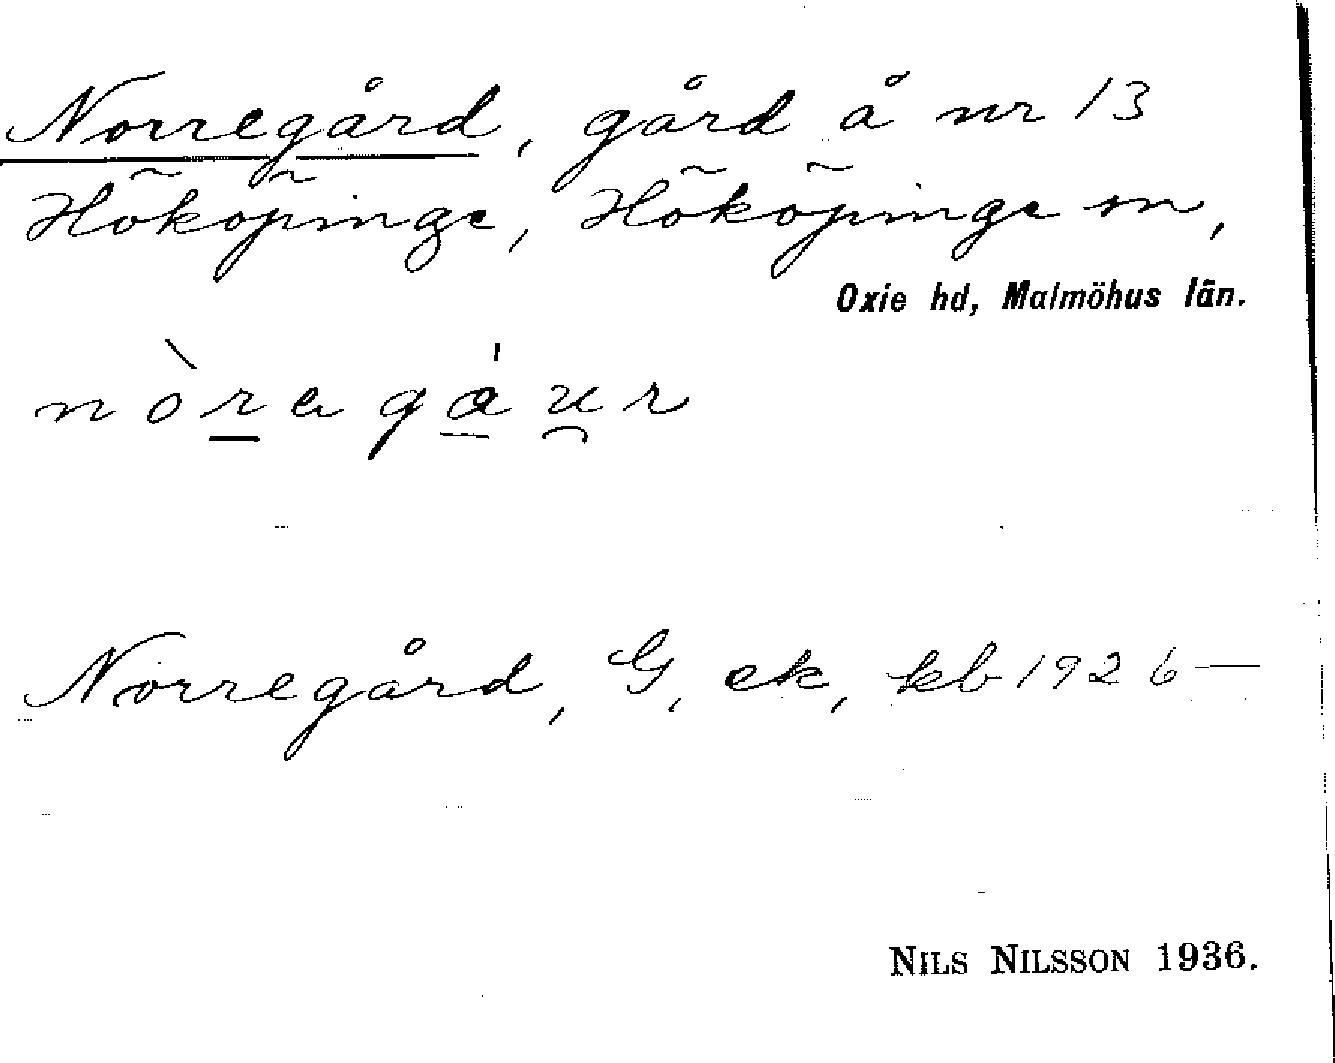 Norregård, gård å nr 13
Hököpinge, Hököpinge sn,
Oxie hd, Malmöhus län.
nòragáur
Norregård, G, ek, kb 1926—
NILS NILSSON 1936.